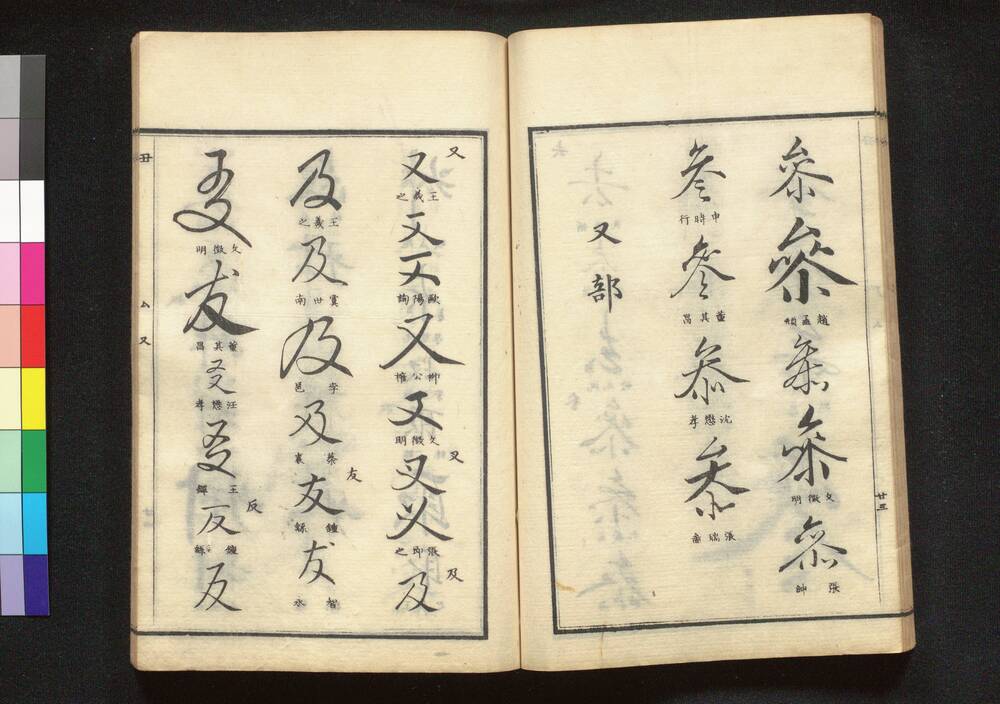 參
參
趙孟頫
參
參
文徵明
參
張帥
廿三
參
申時行
參
董其昌
參
沈懋孝
參
張瑞圖
又部
又
又
王羲之
又
又
歐陽詢
又
柳公權
又
文徵明
叉
叉
叉
張即之
及
及
及
王羲之
及
虞世南
及
李邕
及
蔡襄
友
友
鍾繇
友
智永
友
文徵明
友
董其昌
友
汪懋孝
友
王鐸
反
反
鍾繇
反
丑
厶又